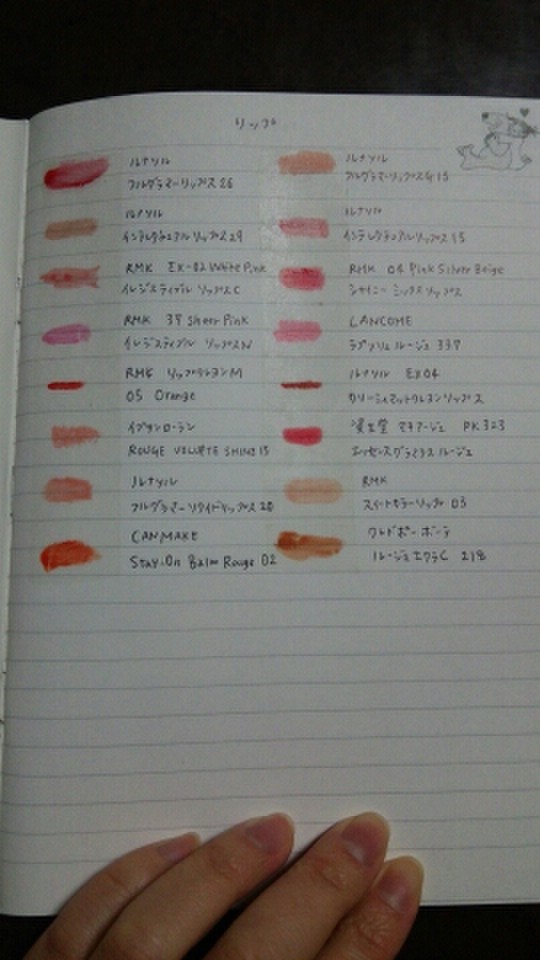 リップ
ルナソル
フルグラマーリップス 26
ルナソル
フルグラマーリップスG 15
ルナソル
インテレクチュアルリップス 29
ルナソル
インテレクチュアルリップス 15
RMK EX-02 White Pink
イレジスティブル リップスC
RMK 04 Pink Silver Beige
シャイニー ミックスリップス
RMK 37 Sheer Pink
イレジスティブル リップスN
LANCOME
ラプソリュ ルージュ 337
RMK リップクレヨンM
05 Orange
ルナソル EX04
カリーシィマットクレヨンリップス
イブサンローラン
ROUGE VOLUPTE SHINE 15
資生堂 マキアージュ PK323
エッセンスグラマラスルージュ
ルナソル
フルグラマーリクイドリップス 20
RMK
リップ 03
CANMAKE
Stay-On Balm Rouge 02
クレドポーボーテ
ルージュエクラC 218